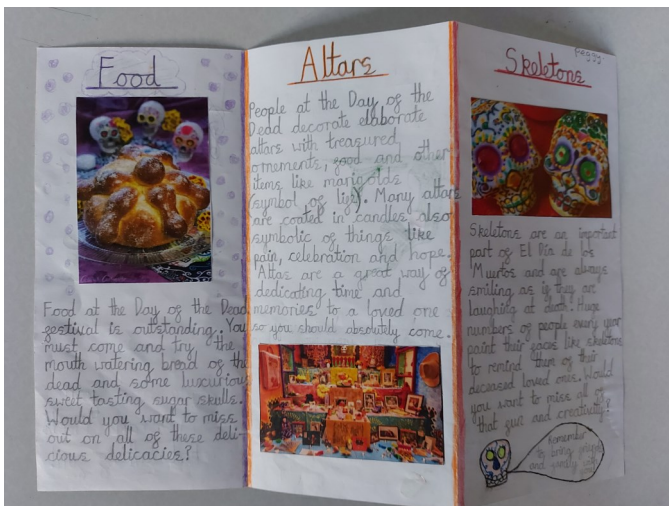 Food
Food at the Day of the Dead
festival is outstanding. You
must come and try the
mouth watering bread of the
dead and some luxurious
sweet tasting sugar skulls.
Would you want to miss
out on all of these deli-
cious delicacies?
Altars
People at the Day of the
Dead decorate elaborate
altars with treasured
ornements, food and other
items like marigolds
(symbol of life). Many altars
are coated in candles also
symbolic of things like
pain, celebration and hope.
Altas are a great way of
dedicating time and
memories to a loved one
so you should absolutely come.
Peggy
Skeletons
Skeletons are an important
part of El Día de los
Muertos and are always
smiling as if they are
laughing at death. Huge
numbers of people every year
paint their faces like skeletons
to remind them of their
deceased loved ones. Would
you want to miss all of
that fun and creativity?
Remember
to bring
and